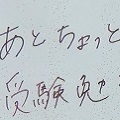 あとちょっと
受験勉